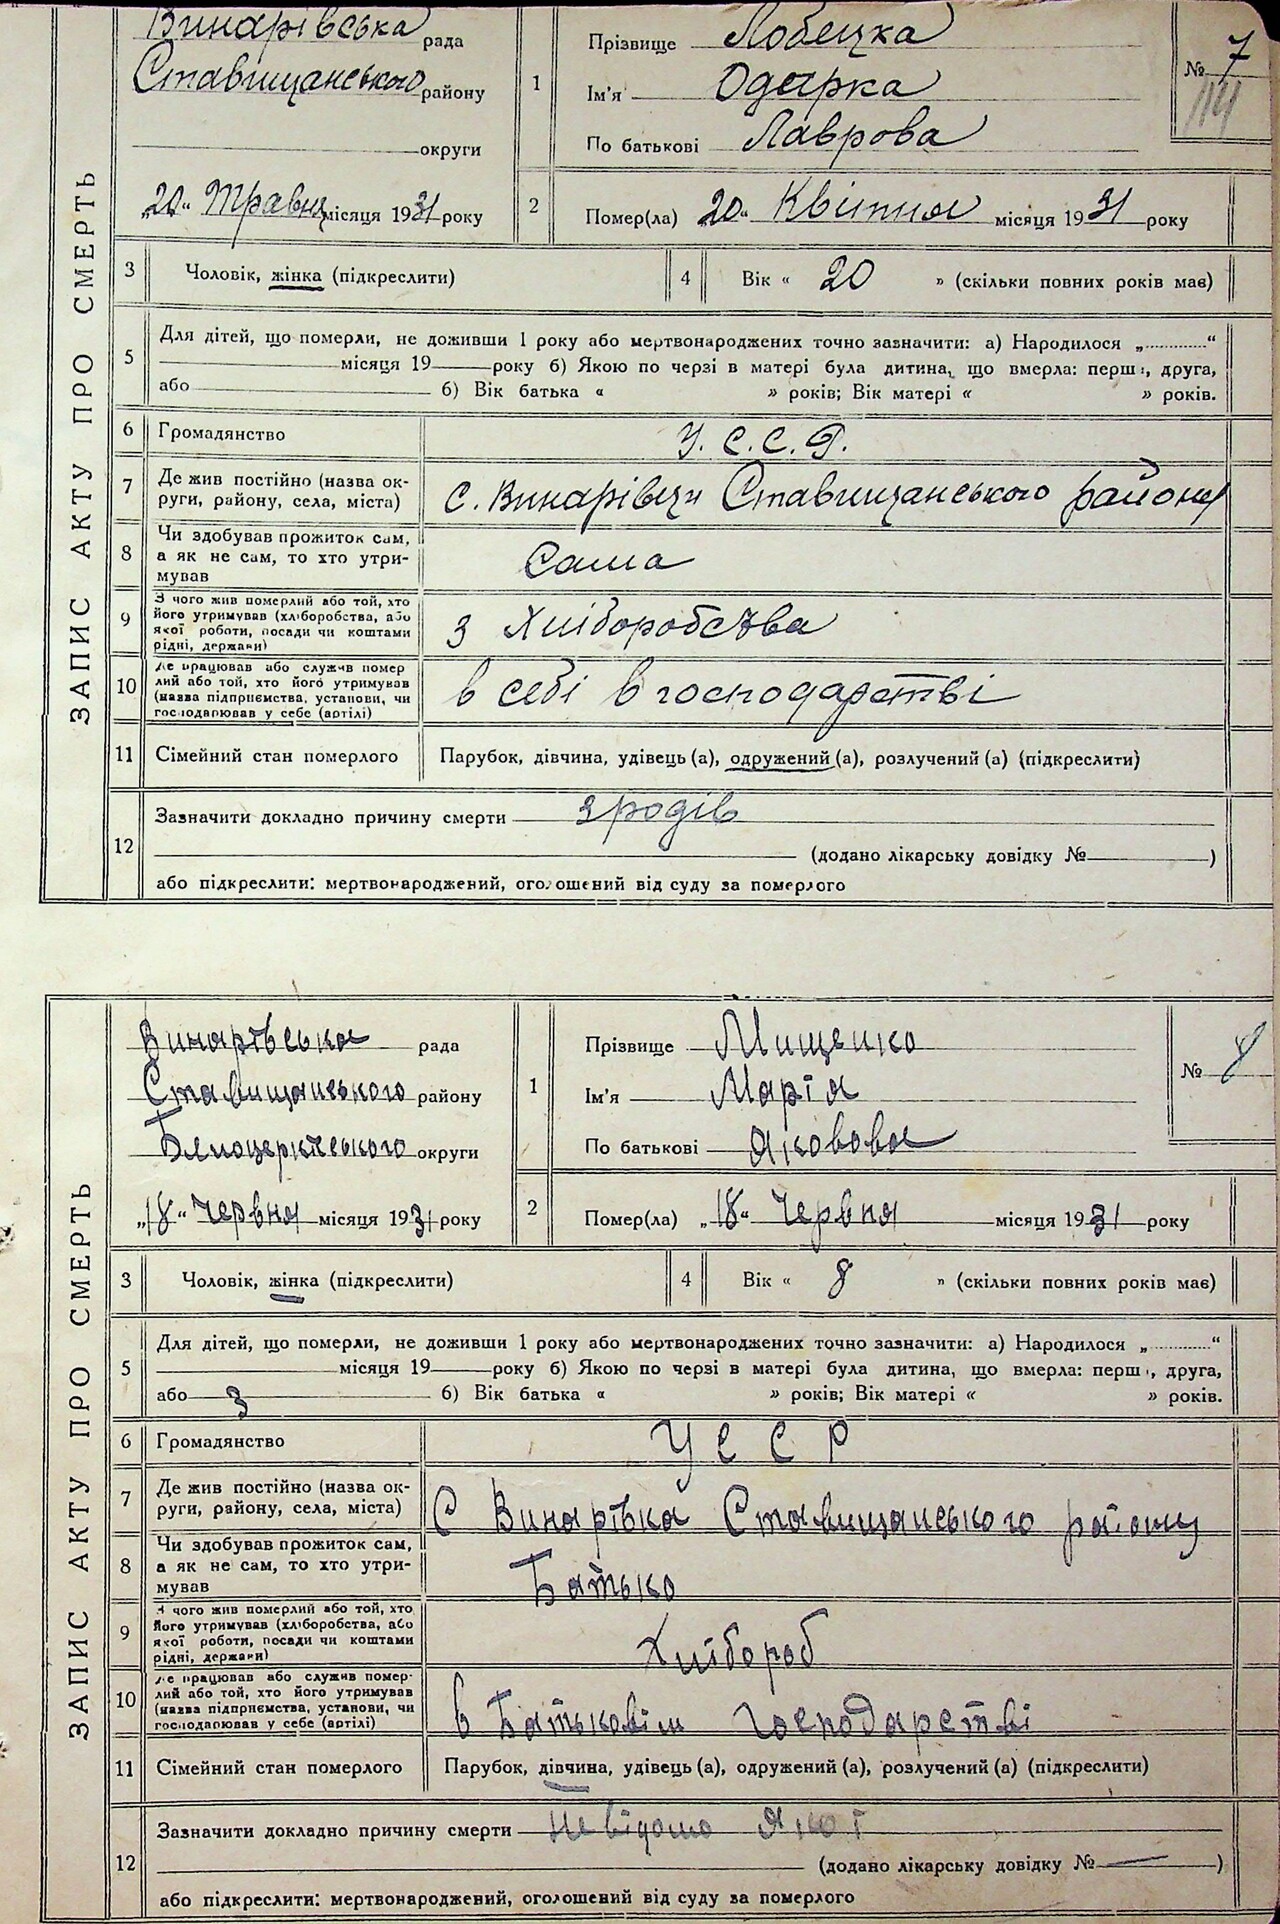 ЗАПИС АКТУ ПРО СМЕРТЬ
Винарівська рада
Ставищанського району
округи
„20“ Травня місяця 1931 року
1
Прізвище Лобецка
Ім'я Одарка
По батькові Лаврова
№ 7
114
2
Помер(ла) 20“ Квітня місяця 1931 року
3
Чоловік, жінка (підкреслити)
4
Вік « 20 » (скільки повних років має)
5
Для дітей, що померли, не доживши 1 року або мертвонароджених точно зазначити: а) Народилося „............“
місяця 19 року б) Якою по черзі в матері була дитина, що вмерла: перша, друга,
або б) Вік батька « » років; Вік матері « » років.
6
Громадянство
У. С. С. Р.
7
Де жив постійно (назва ок-
руги, району, села, міста)
с. Винарівци Ставищанського району
8
Чи здобував прожиток сам,
а як не сам, то хто утри-
мував
Сама
9
З чого жив померлий або той, хто
його утримував (хліборобства, або
якої роботи, посади чи коштами
рідні, держави)
з Хліборобства
10
Де працював або служив помер
лий або той, хто його утримував
(назва підприємства, установи, чи
господарював у себе (артілі)
в себі в господарстві
11
Сімейний стан померлого
Парубок, дівчина, удівець (а), одружений (а), розлучений (а) (підкреслити)
12
Зазначити докладно причину смерти з родів
(додано лікарську довідку № )
або підкреслити: мертвонароджений, оголошений від суду за померлого
ЗАПИС АКТУ ПРО СМЕРТЬ
Винарівська рада
Ставищанського району
Білоцерківського округи
„18“ Червня місяця 1931 року
1
Прізвище Мищенко
Ім'я Марія
По батькові Яковова
№ 8
2
Помер(ла) „18“ Червня місяця 1931 року
3
Чоловік, жінка (підкреслити)
4
Вік « 8 » (скільки повних років має)
5
Для дітей, що померли, не доживши 1 року або мертвонароджених точно зазначити: а) Народилося „............“
місяця 19 року б) Якою по черзі в матері була дитина, що вмерла: перша, друга,
або 3 б) Вік батька « » років; Вік матері « » років.
6
Громадянство
У С С Р
7
Де жив постійно (назва ок-
руги, району, села, міста)
С Винарівка Ставищанського району
8
Чи здобував прожиток сам,
а як не сам, то хто утри-
мував
Батько
9
З чого жив померлий або той, хто
його утримував (хліборобства, або
якої роботи, посади чи коштами
рідні, держави)
Хлібороб
10
Де працював або служив помер-
лий або той, хто його утримував
(назва підприємства, установи, чи
господарював у себе (артілі)
в Батьковім господарстві
11
Сімейний стан померлого
Парубок, дівчина, удівець (а), одружений (а), розлучений (а) (підкреслити)
12
Зазначити докладно причину смерти невідомо якої
(додано лікарську довідку № — )
або підкреслити: мертвонароджений, оголошений від суду за померлого